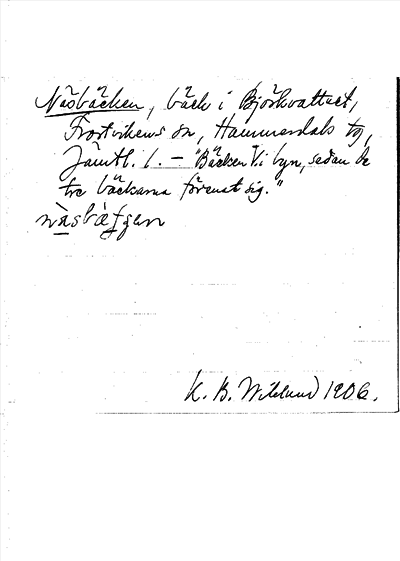 Näsbäcken, bäck i Björkvattnet,
Frostvikens sn, Hammerdals tg,
Jämtl. l. – "Bäcken i byn, sedan de
tre bäckarna förenat sig."
K. B. Wiklund 1906.